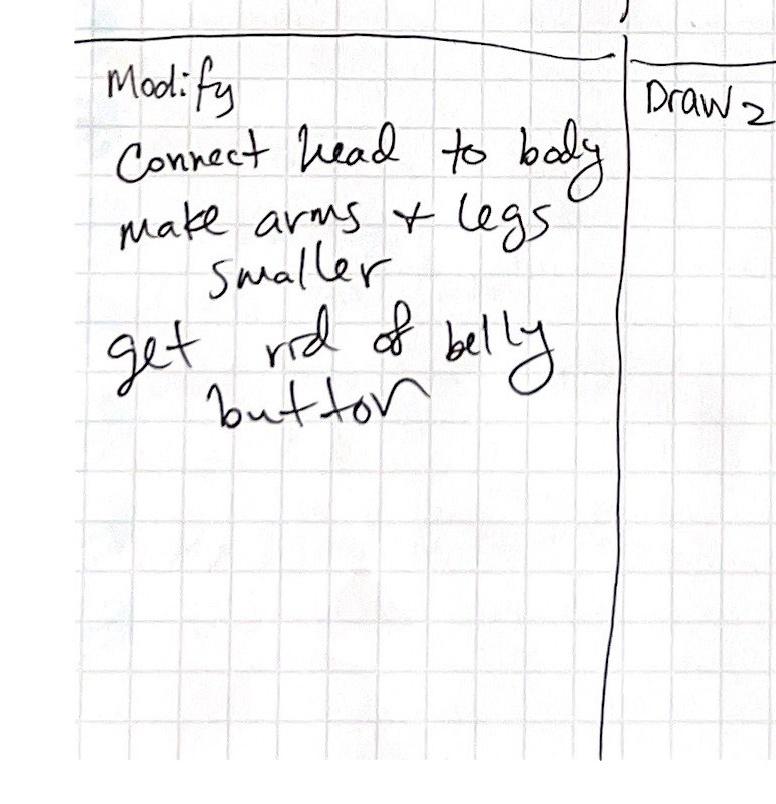 Modify
Connect head to body
make arms + legs
smaller
get rid of belly
button
Draw 2